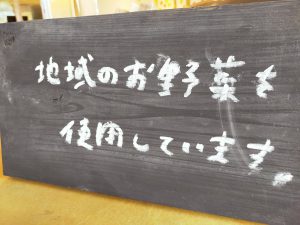 地域のお野菜を
使用しています。